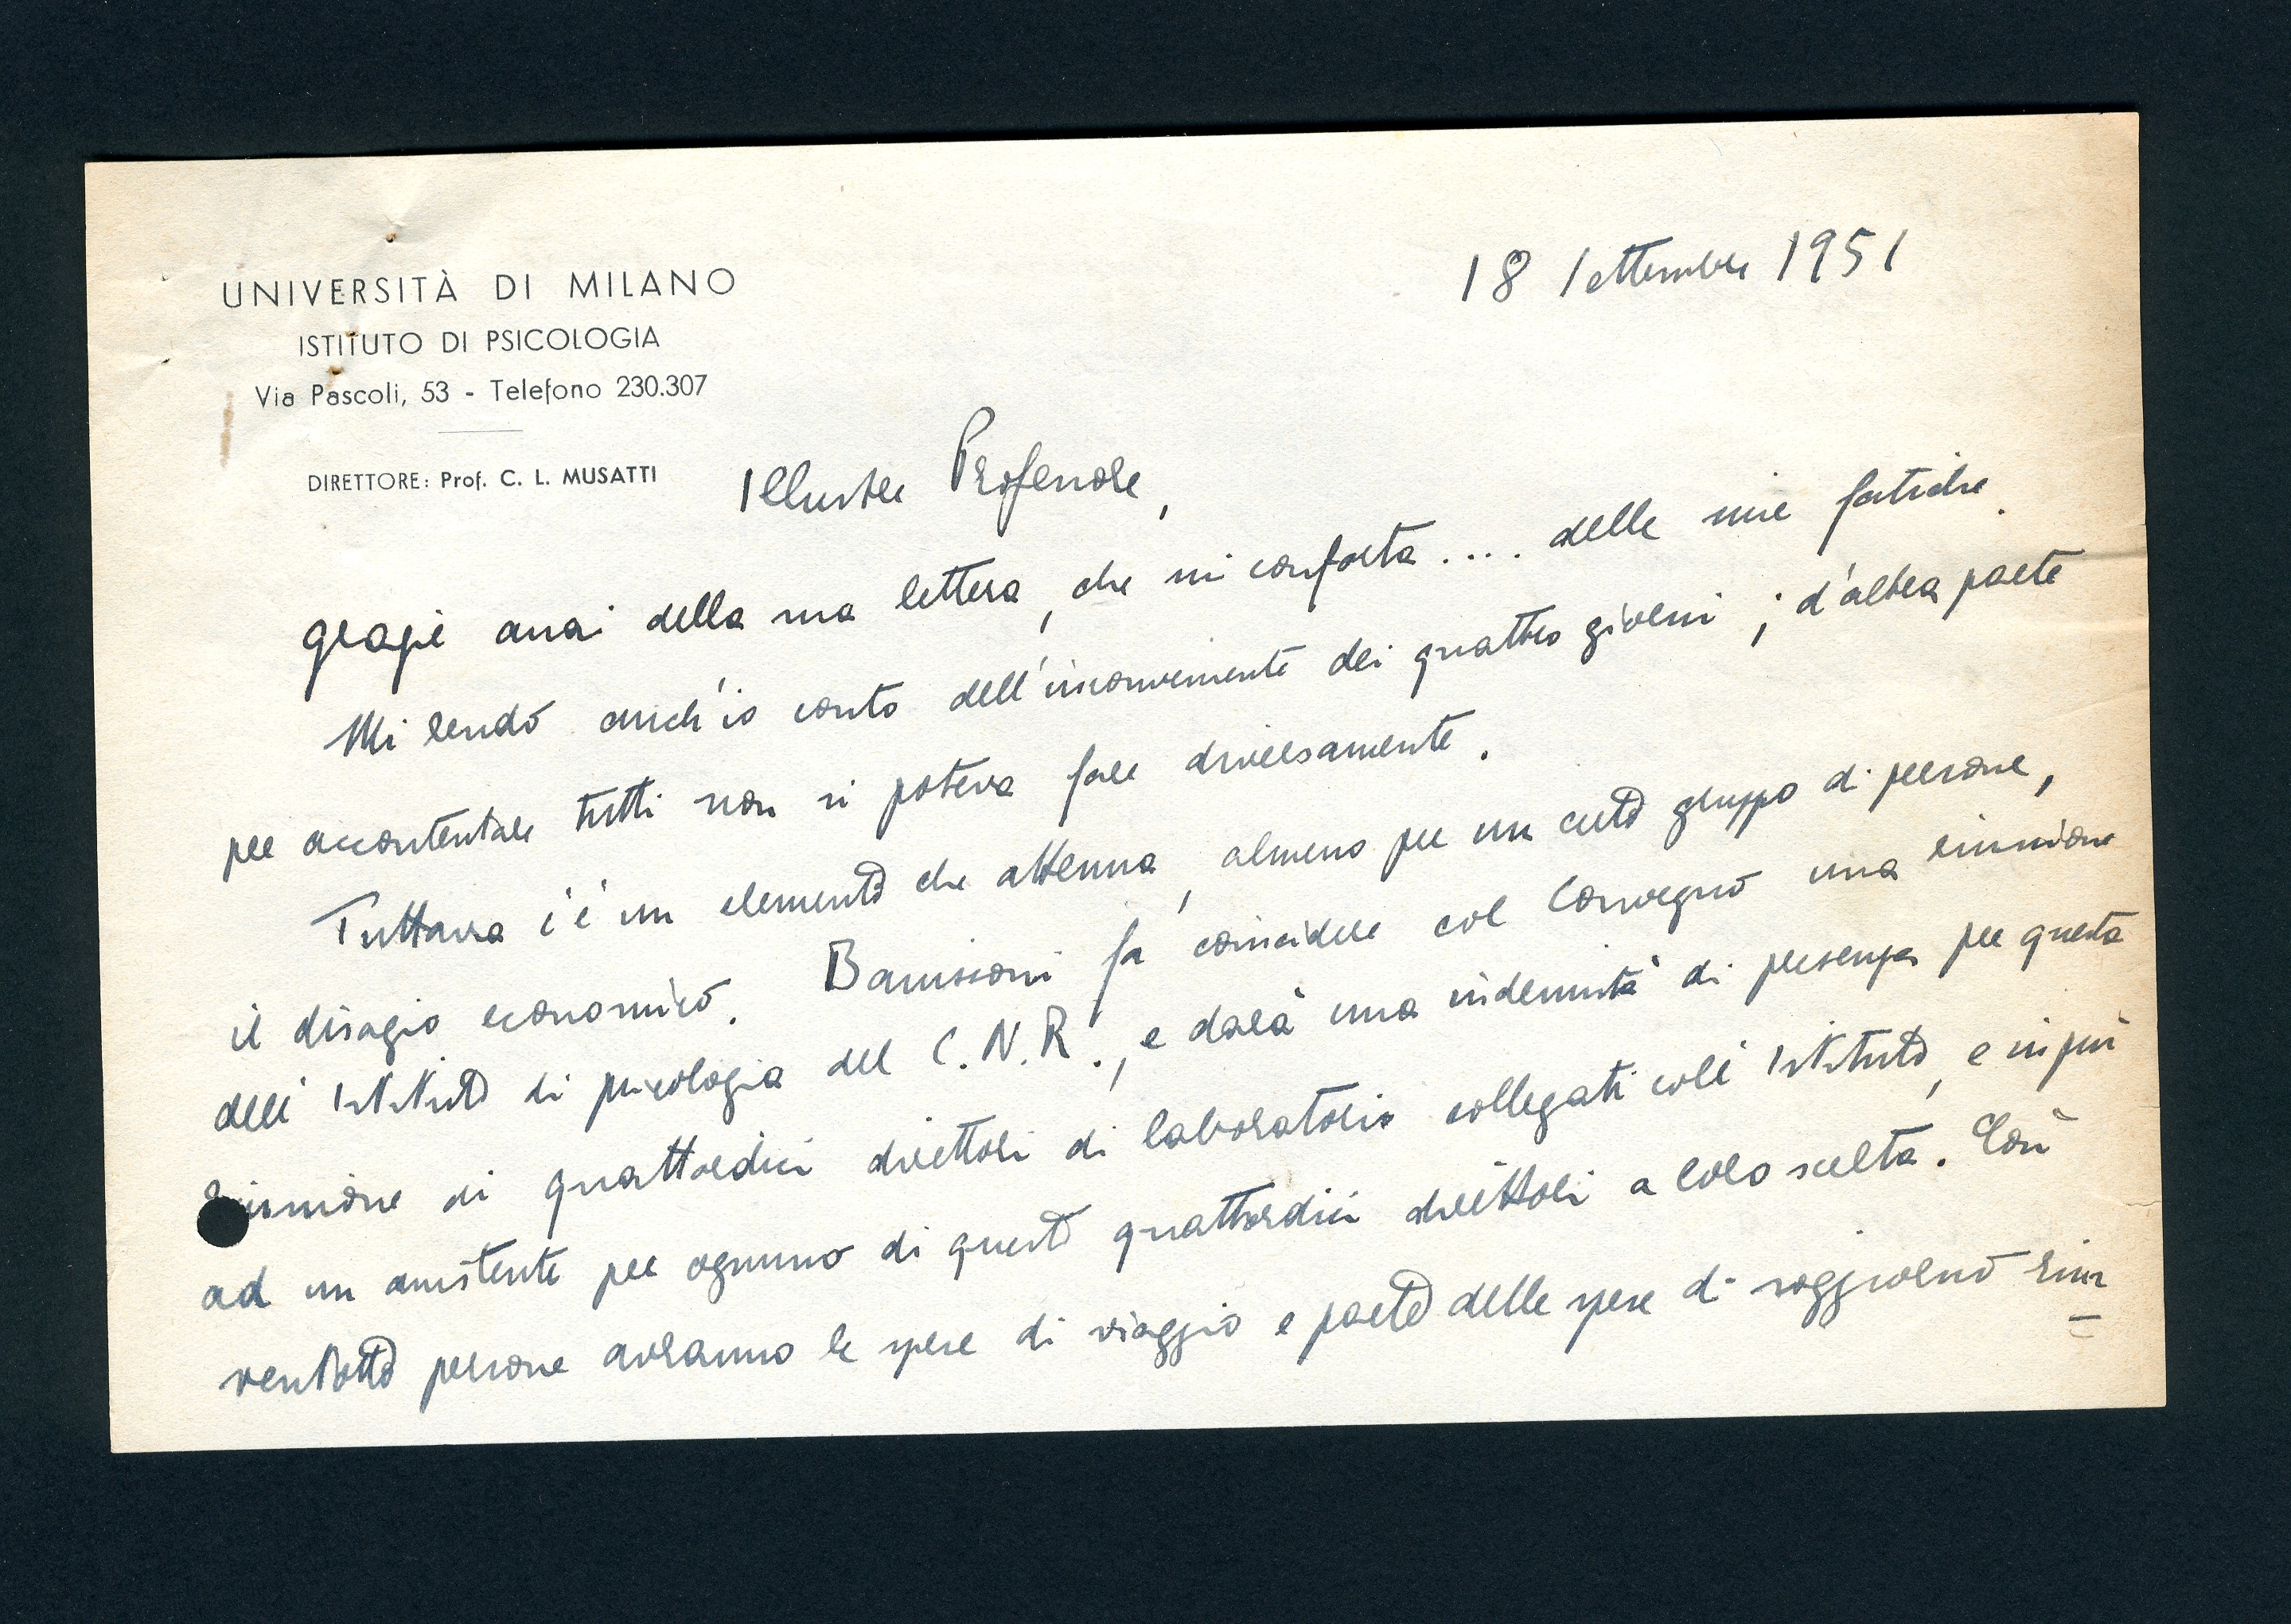 UNIVERSITÀ DI MILANO
ISTITUTO DI PSICOLOGIA
Via Pascoli, 53 - Telefono 230.307
DIRETTORE: Prof. C. L. MUSATTI
18 settembre 1951
Illustre Professore,
grazie assai della sua lettera, che mi conforta .... delle mie fatiche.
Mi rendo anch'io conto dell'inconveniente dei quattro giorni; d'altra parte
per accontentare tutti non si poteva fare diversamente.
Tuttavia c'è un elemento che attenua, almeno per un certo gruppo di persone,
il disagio economico. Banissoni fa coincidere col Convegno una riunione
dell'Istituto di psicologia del C.N.R., e darà una indennità di presenza per questa
riunione di quattordici direttori di laboratorio collegati coll'Istituto, e in più
ad un assistente per ognuno di questi quattordici direttori a loro scelta. Così
ventotto persone avranno le spese di viaggio e parte delle spese di soggiorno rim-